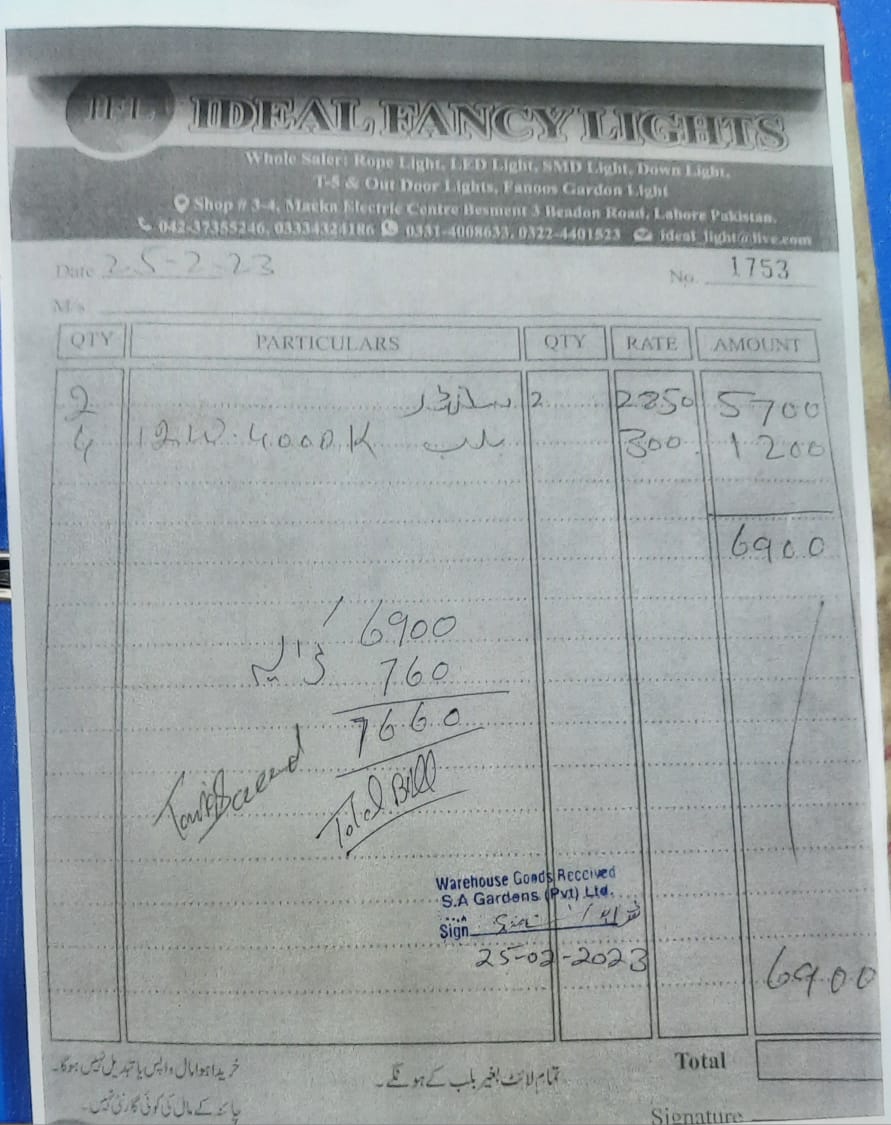 IFL IDEAL FANCY LIGHTS
Whole Saler: Rope Light, LED Light, SMD Light, Down Light,
T-5 & Out Door Lights, Fanoos Gardon Light
Shop # 3-4, Macka Electric Centre Besment 3 Beadon Road, Lahore Pakistan.
042-37355246, 03334324186 0331-4008633, 0322-4401523 ideal_light@live.com
Date 25-2-23 No. 1753
M/s
QTY PARTICULARS QTY RATE AMOUNT
2 2 2850 5700
4 12W 4000K بلب 300 1200
6900
6900
760
7660
Total Bill
Warehouse Goods Received
S.A Gardens (Pvt) Ltd.
Sign
25-02-2023
6900
خریدا ہوا مال واپس یا تبدیل نہیں ہوگا۔
تمام لائٹ بغیر بلب کے ہونگے۔
Total
چائنہ کے مال کی کوئی گارنٹی نہیں۔
Signature